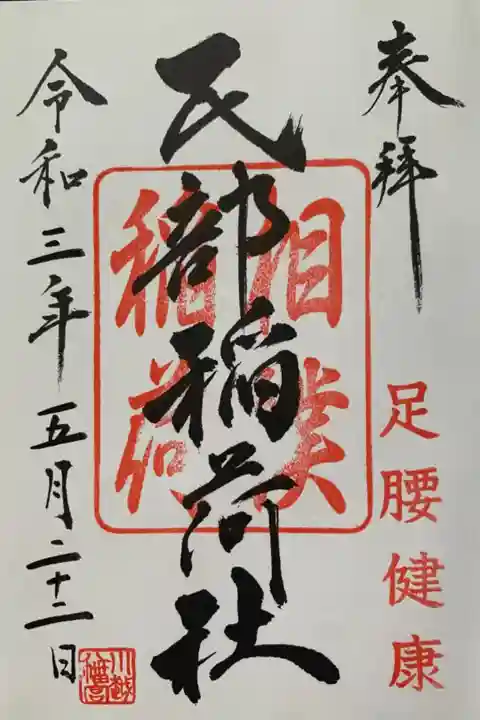 奉拝
足腰健康
民部稲荷社
相撲
稲荷
令和三年五月二十二日
川越
八幡宮